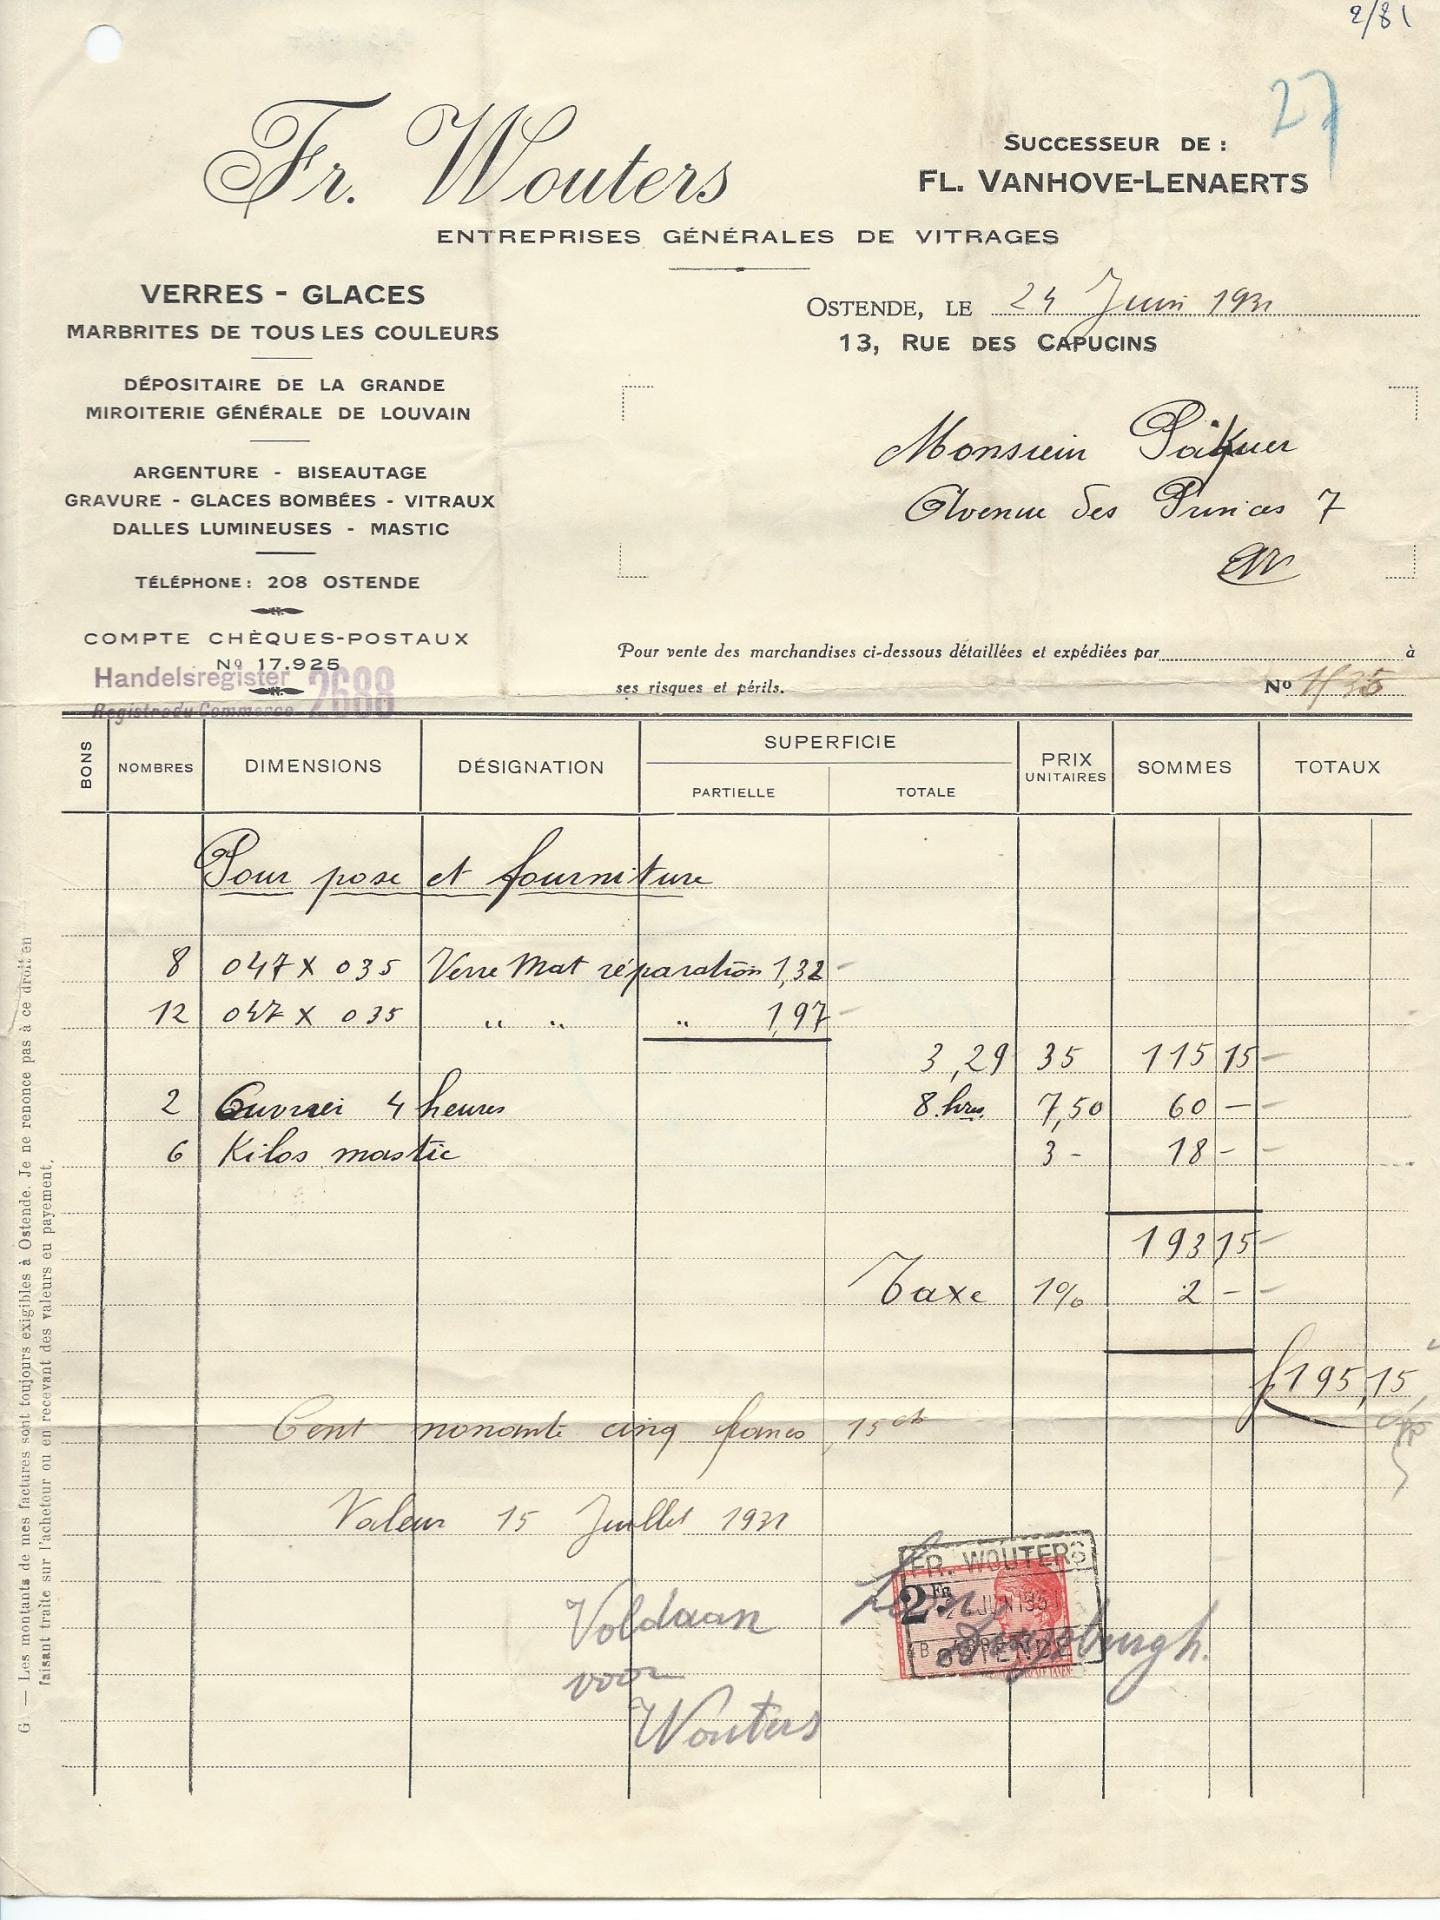 2/81
27
Fr. Wouters
SUCCESSEUR DE :
FL. VANHOVE-LENAERTS
ENTREPRISES GÉNÉRALES DE VITRAGES
VERRES - GLACES
MARBRITES DE TOUS LES COULEURS
DÉPOSITAIRE DE LA GRANDE
MIROITERIE GÉNÉRALE DE LOUVAIN
ARGENTURE - BISEAUTAGE
GRAVURE - GLACES BOMBÉES - VITRAUX
DALLES LUMINEUSES - MASTIC
TÉLÉPHONE : 208 OSTENDE
COMPTE CHÈQUES-POSTAUX
No 17.925
Handelsregister 2688
Registre du Commerce
OSTENDE, LE 24 Juin 1931
13, RUE DES CAPUCINS
Monsieur
Avenue des Princes 7
Pour vente des marchandises ci-dessous détaillées et expédiées par à
ses risques et périls.
No
BONS NOMBRES DIMENSIONS DÉSIGNATION SUPERFICIE PRIX UNITAIRES SOMMES TOTAUX
PARTIELLE TOTALE
Pour pose et fourniture
8 047 x 035 Verre Mat réparation 1,32
12 047 x 035 " " " 1,97
3,29 35 115 15
2 Ouvrier 4 heures 8 hrs. 7,50 60 -
6 Kilos mastic 3 - 18 -
193 15
Taxe 1% 2 -
f 195,15
Cent nonante cinq francs 15 cts
Valeur 15 Juillet 1931
Voldaan
voor
Wouters
FR. WOUTERS
2 Fr
24 JUN 1931
OSTENDE
G. — Les montants de mes factures sont toujours exigibles à Ostende. Je ne renonce pas à ce droit en
faisant traite sur l'acheteur ou en recevant des valeurs en payement.